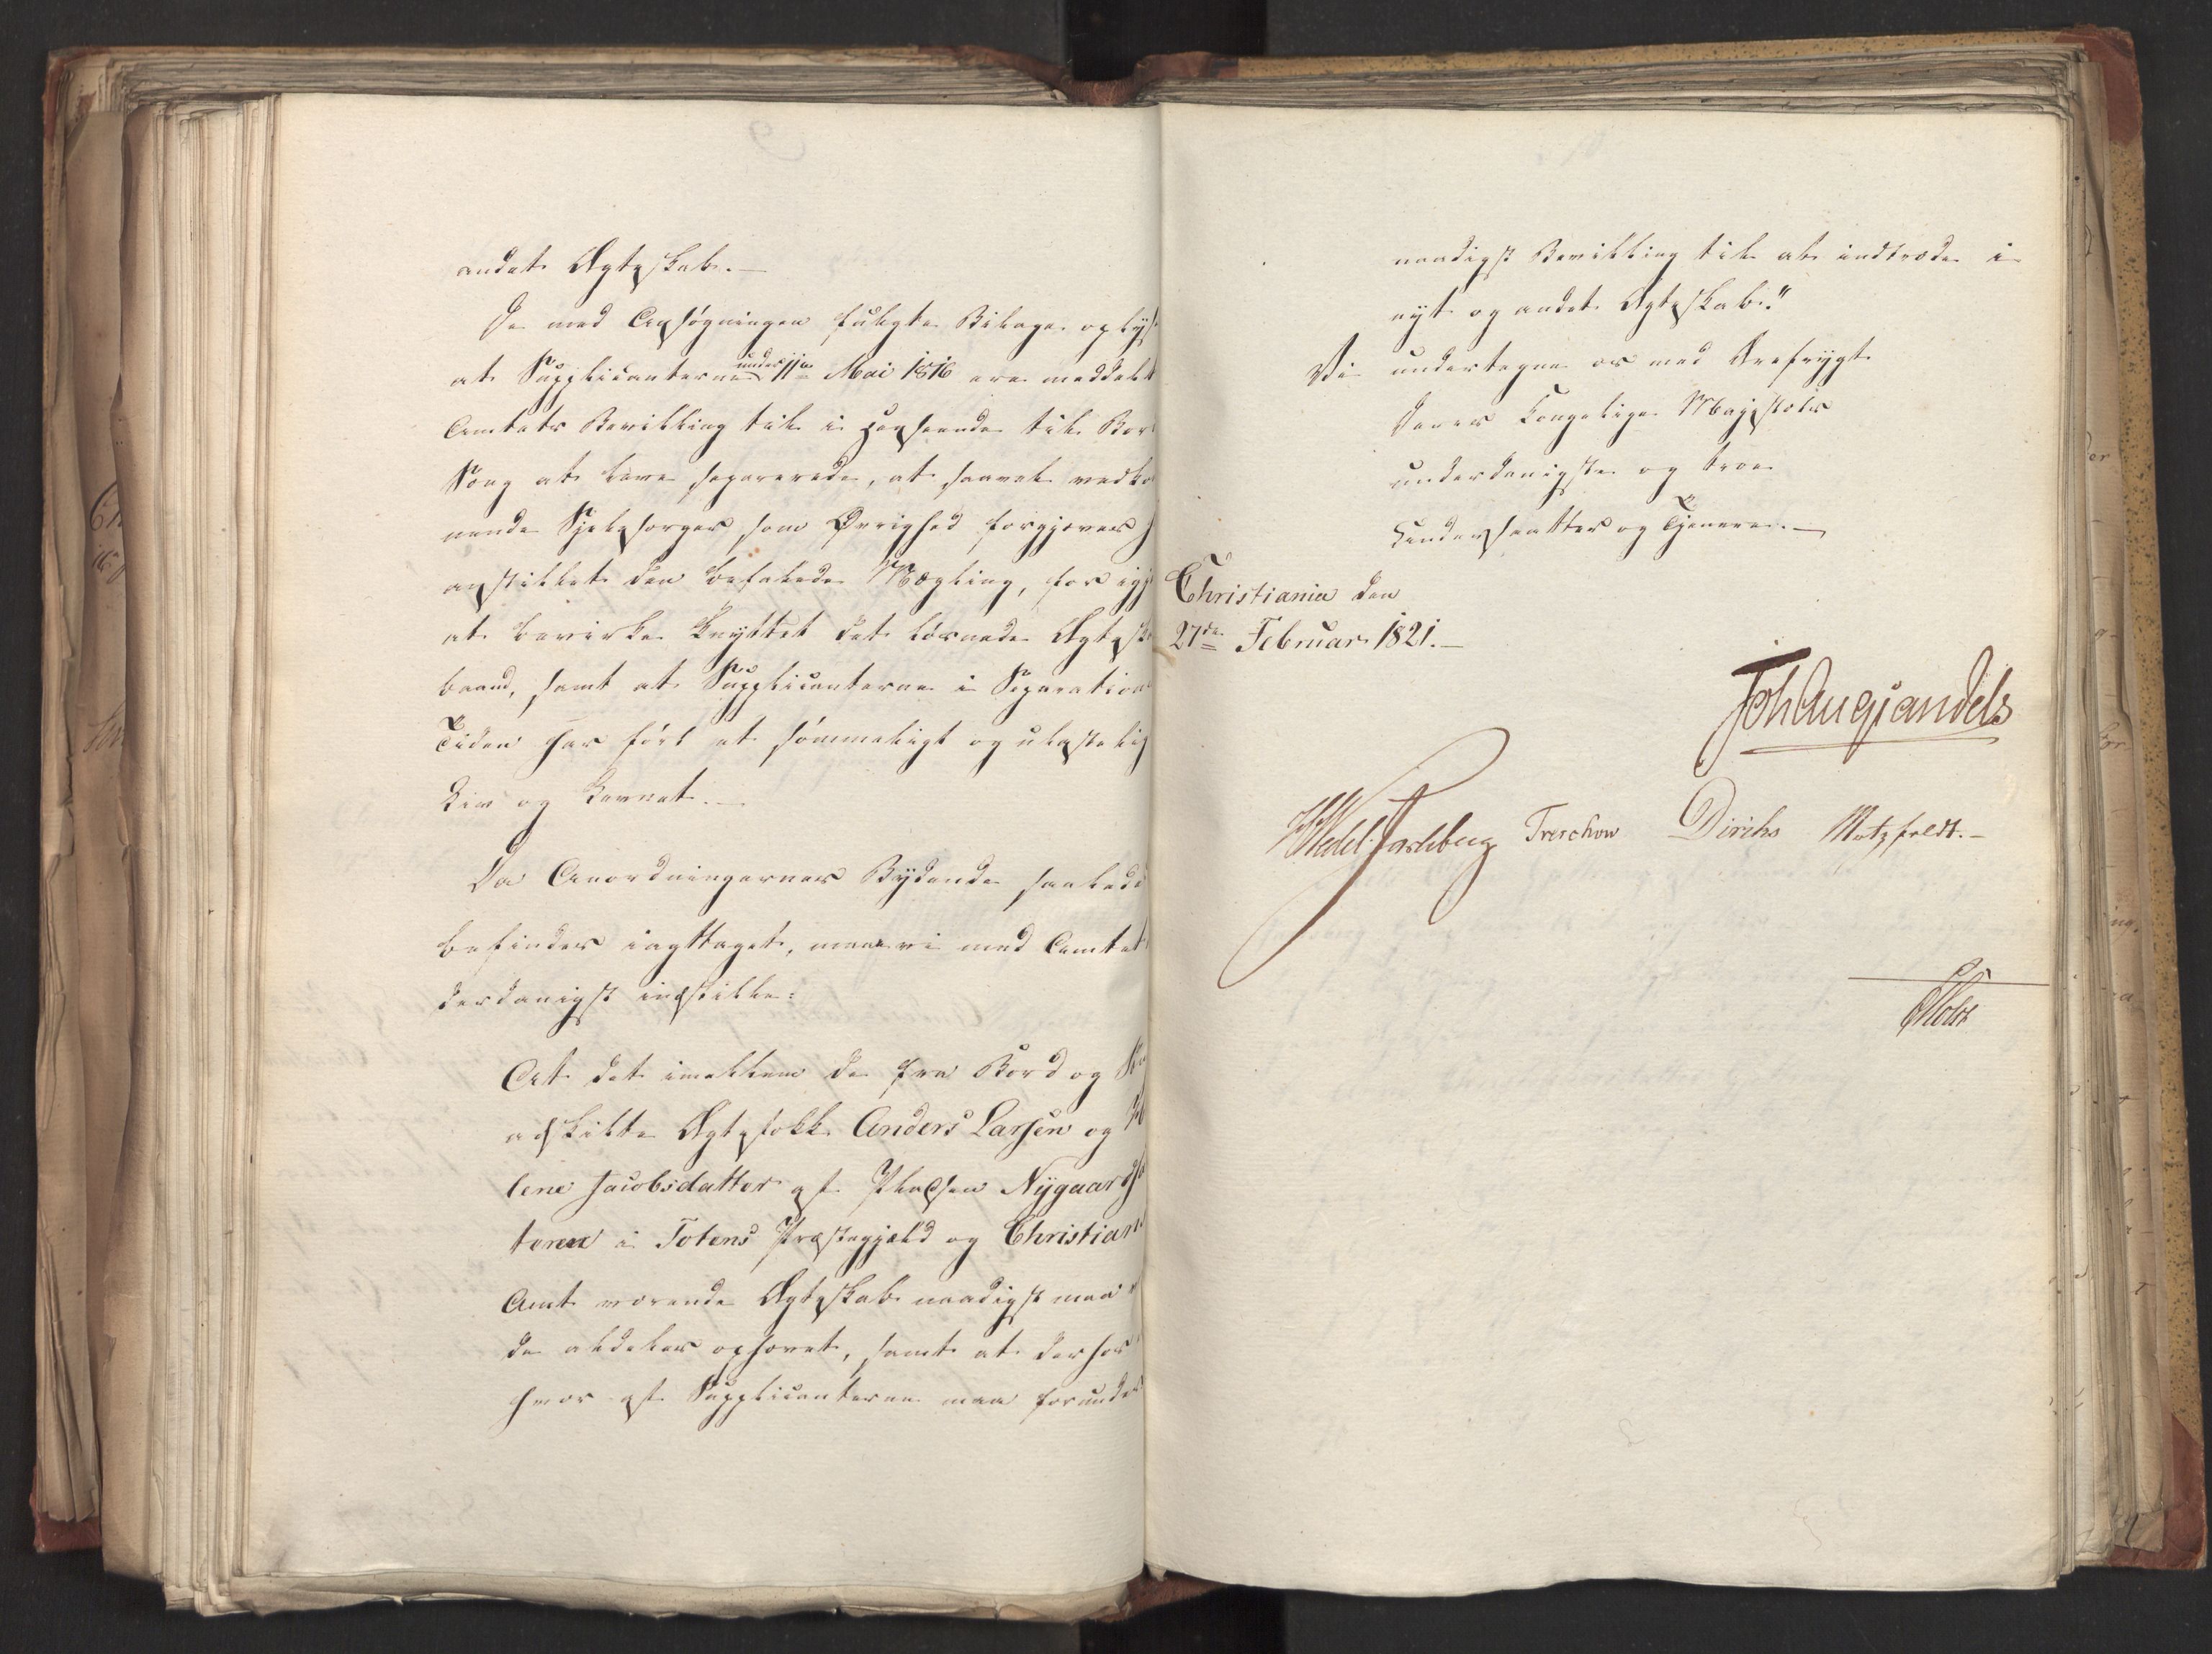 andet Ægteskab.—
De med Ansøgningen fulgte Bilage oplys
at Supplicanterne under 11te Mai 1816 ere meddelt
Amtets Bevilling til i Henseende til Bor
Seng at leve separerede, at saavel vedko
mende Sjelesørger, som Øvrighed forgjæves h
anstillet den befalede Mægling, for igje
at bevirke knyttet det løsnede Ægtesk
baand, samt at Supplicanterne i Separation
Tiden har ført et sømmeligt og ulasteligt
Liv og Levnet.—
Da Anordningernes Bydende saalede
befindes iagttaget, maae vi med Amtet
derdanigst indstille:
At det imellem de fra Bord og Se
adskilte Ægtefolk Anders Larsen og He
lene Jacobsdatter af Pladsen Nygaards
teren i Totens Præstegjæld og Christian
Amt værende Ægteskab naadigst maa
de aldeles ophævet, samt at derhos
hver af Supplicanterne maa forundes
naadigst Bevilling til at indtræde i
nyt og andet Ægteskab."
Vi undertegne os med Ærefrygt
Deres Kongelige Majestæts
underdanigste og troe
Undersaatter og Tjenere.—
Christiania den
27de Februar 1821.—
Joh Aug Sandels
HWedel Jarlsberg Treschow Diriks Motzfeldt.—
Holst